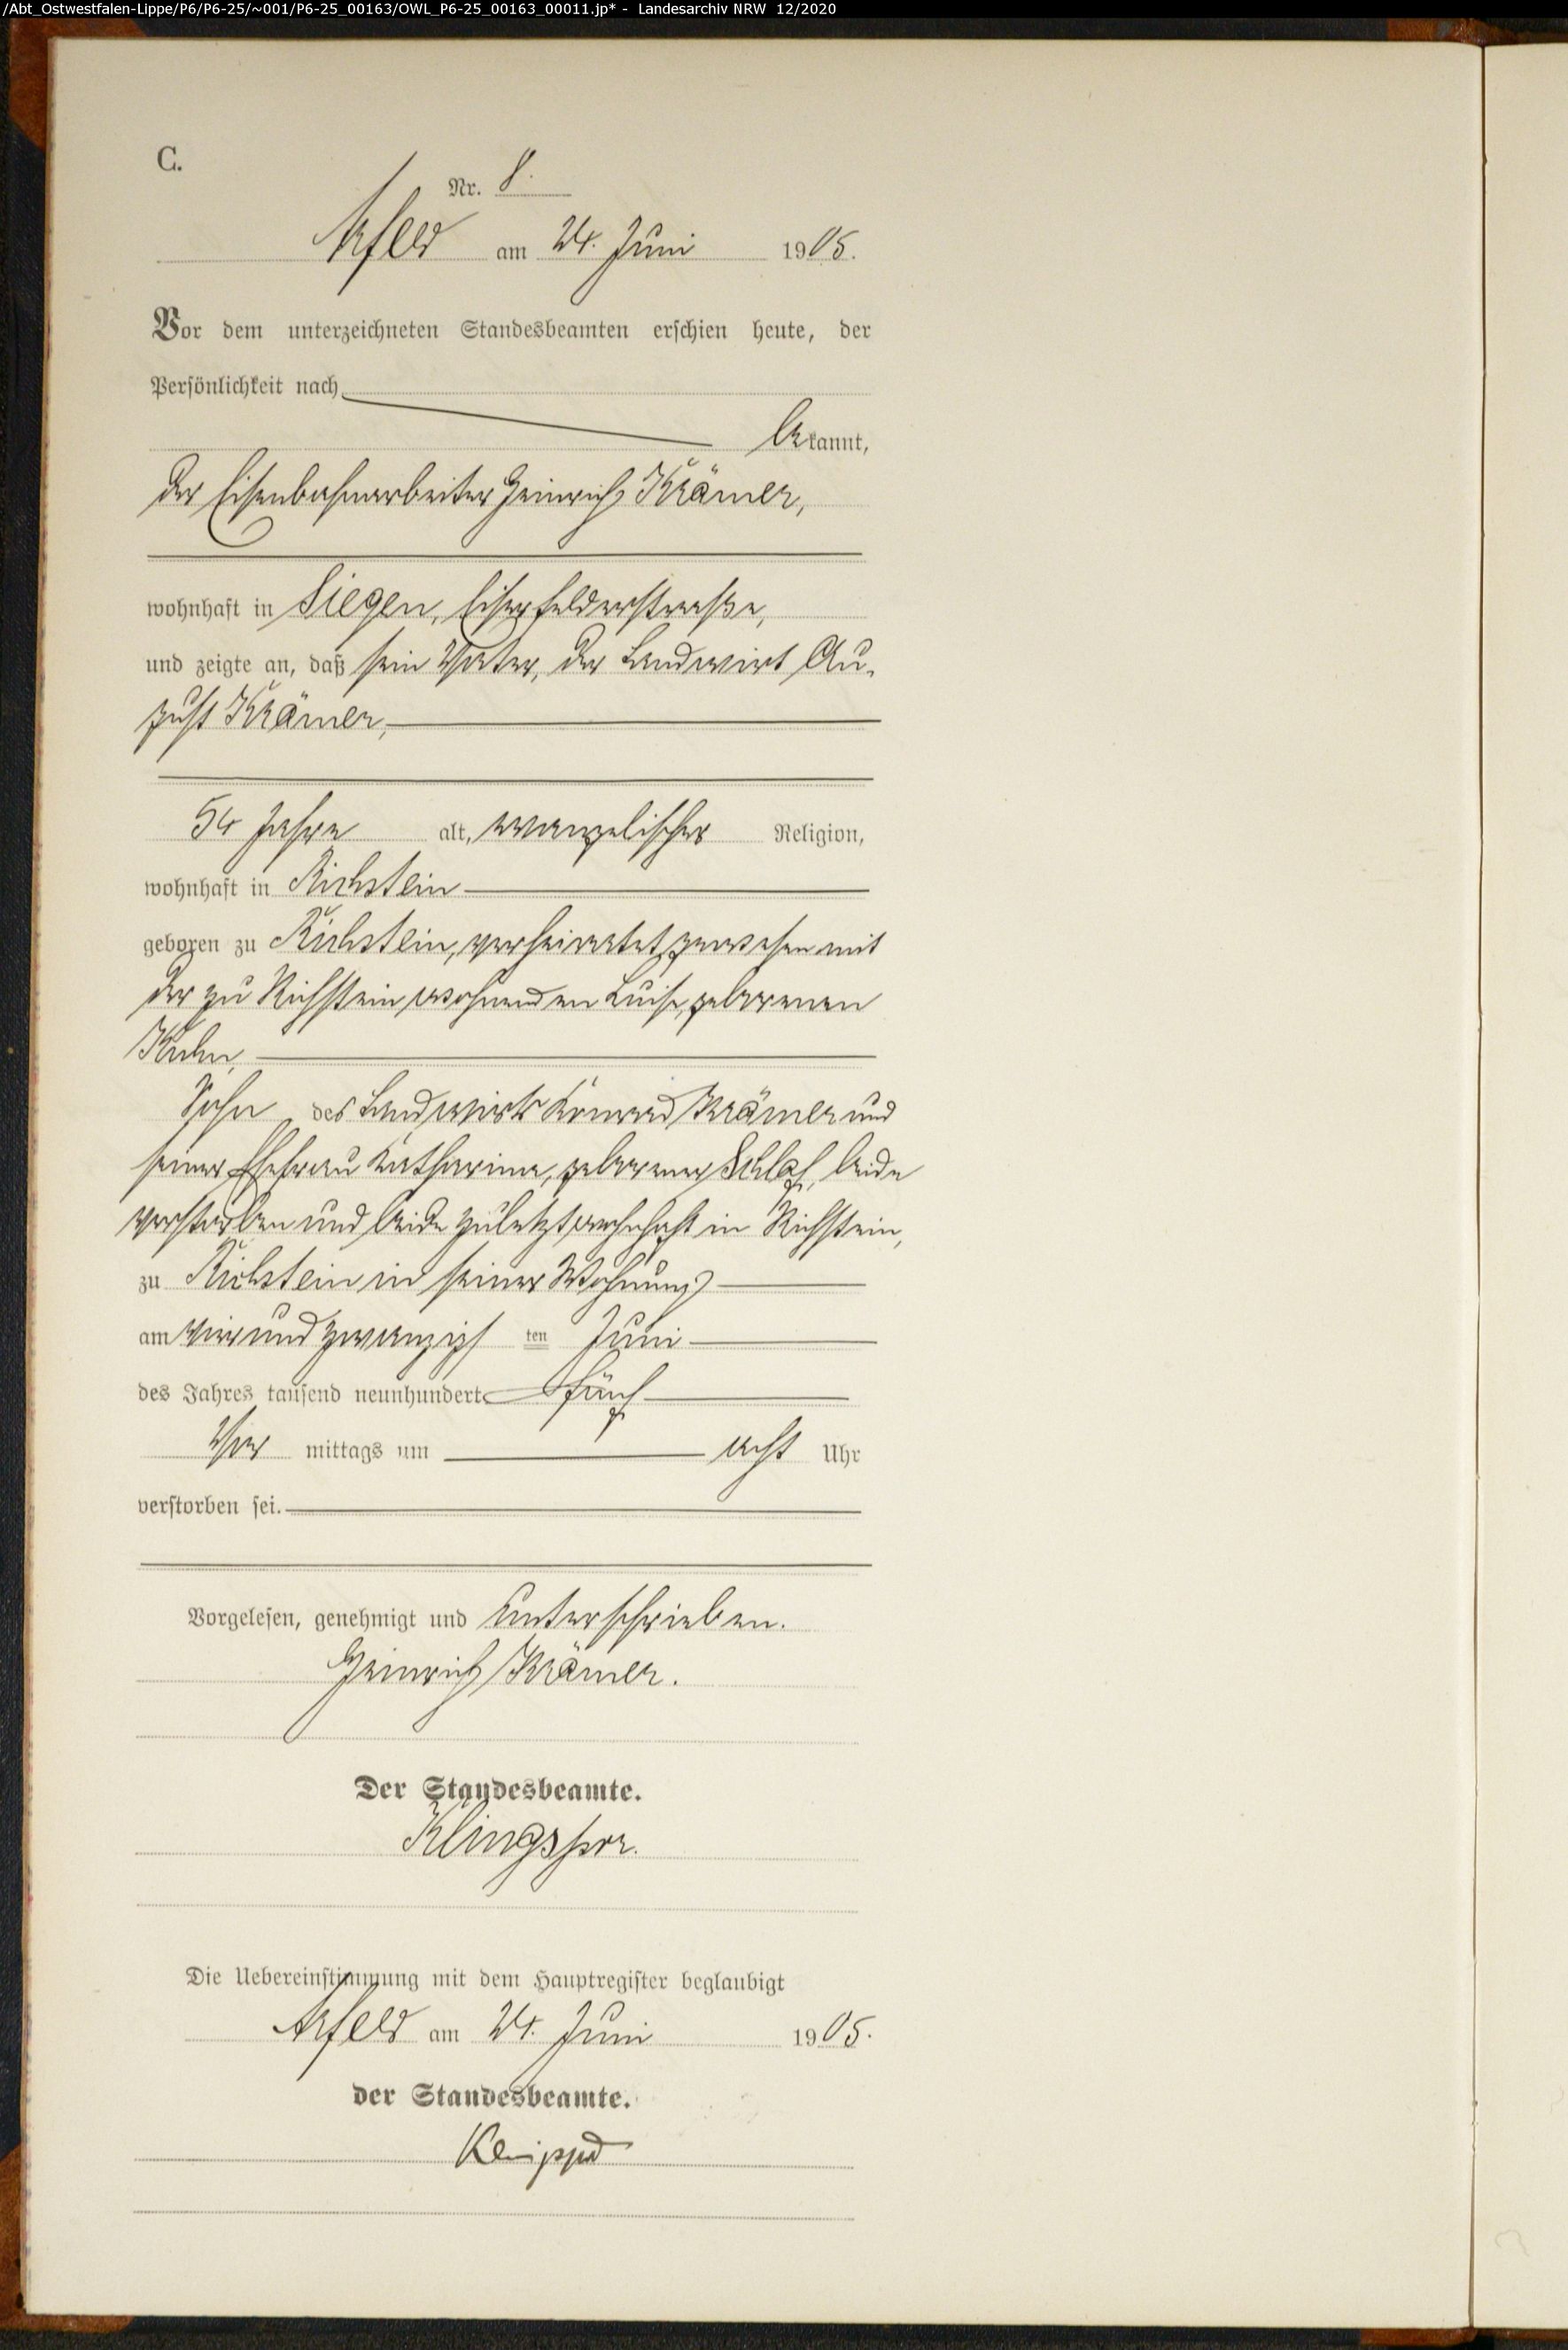 /Abt_Ostwestfalen-Lippe/P6/P6-25/~001/P6-25_00163/OWL_P6-25_00163_00011.jp* - Landesarchiv NRW 12/2020
C.
Nr. 8.
Arfeld am 24. Juni 1905.
Vor dem unterzeichneten Standesbeamten erschien heute, der
Persönlichkeit nach
bekannt,
der Eisenbahnarbeiter Heinrich Krämer,
wohnhaft in Siegen, Eiserfelderstraße,
und zeigte an, daß sein Vater, der Landwirt Au-
gust Krämer,
54 Jahre alt, evangelischer Religion,
wohnhaft in Richstein
geboren zu Richstein, verheiratet gewesen mit
der zu Richstein wohnenden Luise, geborenen
Kuhn,
Sohn des Landwirts Konrad Krämer und
seiner Ehefrau Katharina, geborener Schlaf, beide
verstorben und beide zuletzt wohnhaft in Richstein,
zu Richstein in seiner Wohnung
am vierundzwanzigsten Juni
des Jahres tausend neunhundert fünf
Vor mittags um acht Uhr
verstorben sei.
Vorgelesen, genehmigt und unterschrieben.
Heinrich Krämer.
Der Standesbeamte.
Klingspor.
Die Uebereinstimmung mit dem Hauptregister beglaubigt
Arfeld am 24. Juni 1905.
der Standesbeamte.